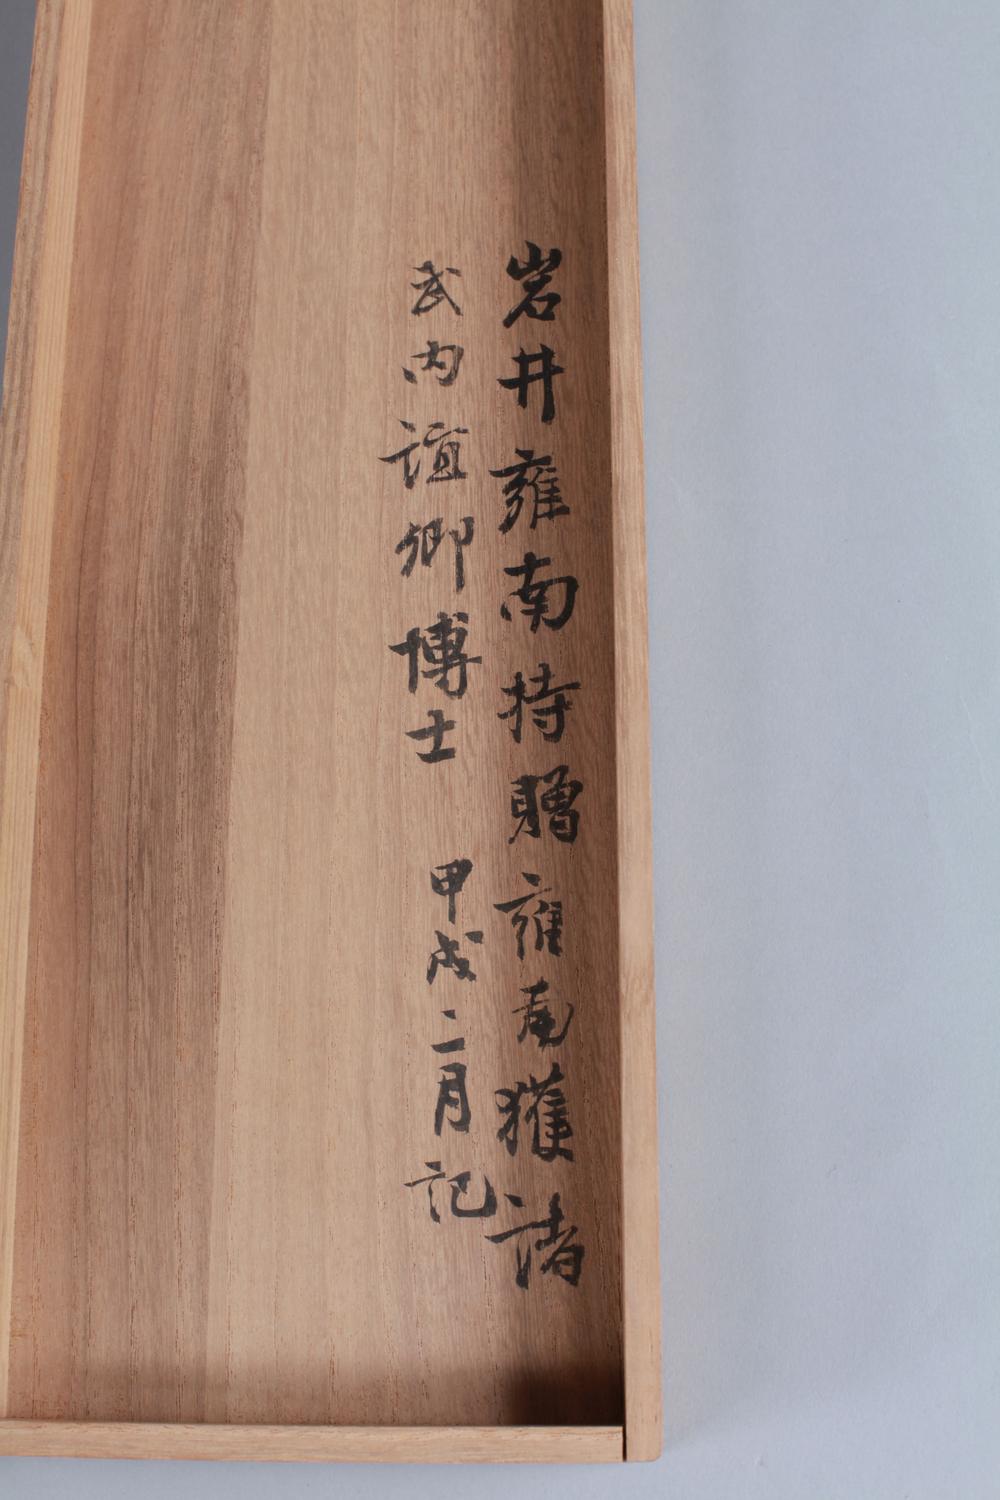 岩井雍南持贈雍南獲諸
武内誼卿博士 甲戌二月記